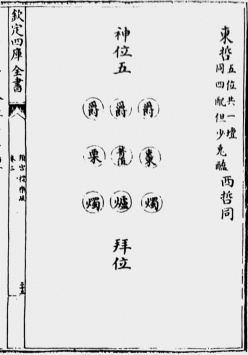 東哲
五位共一壇
同四配但少兔醢
西哲同
神位五
爵 爵 爵
栗 棗
燭 爐 燭
拜位
欽定四庫全書